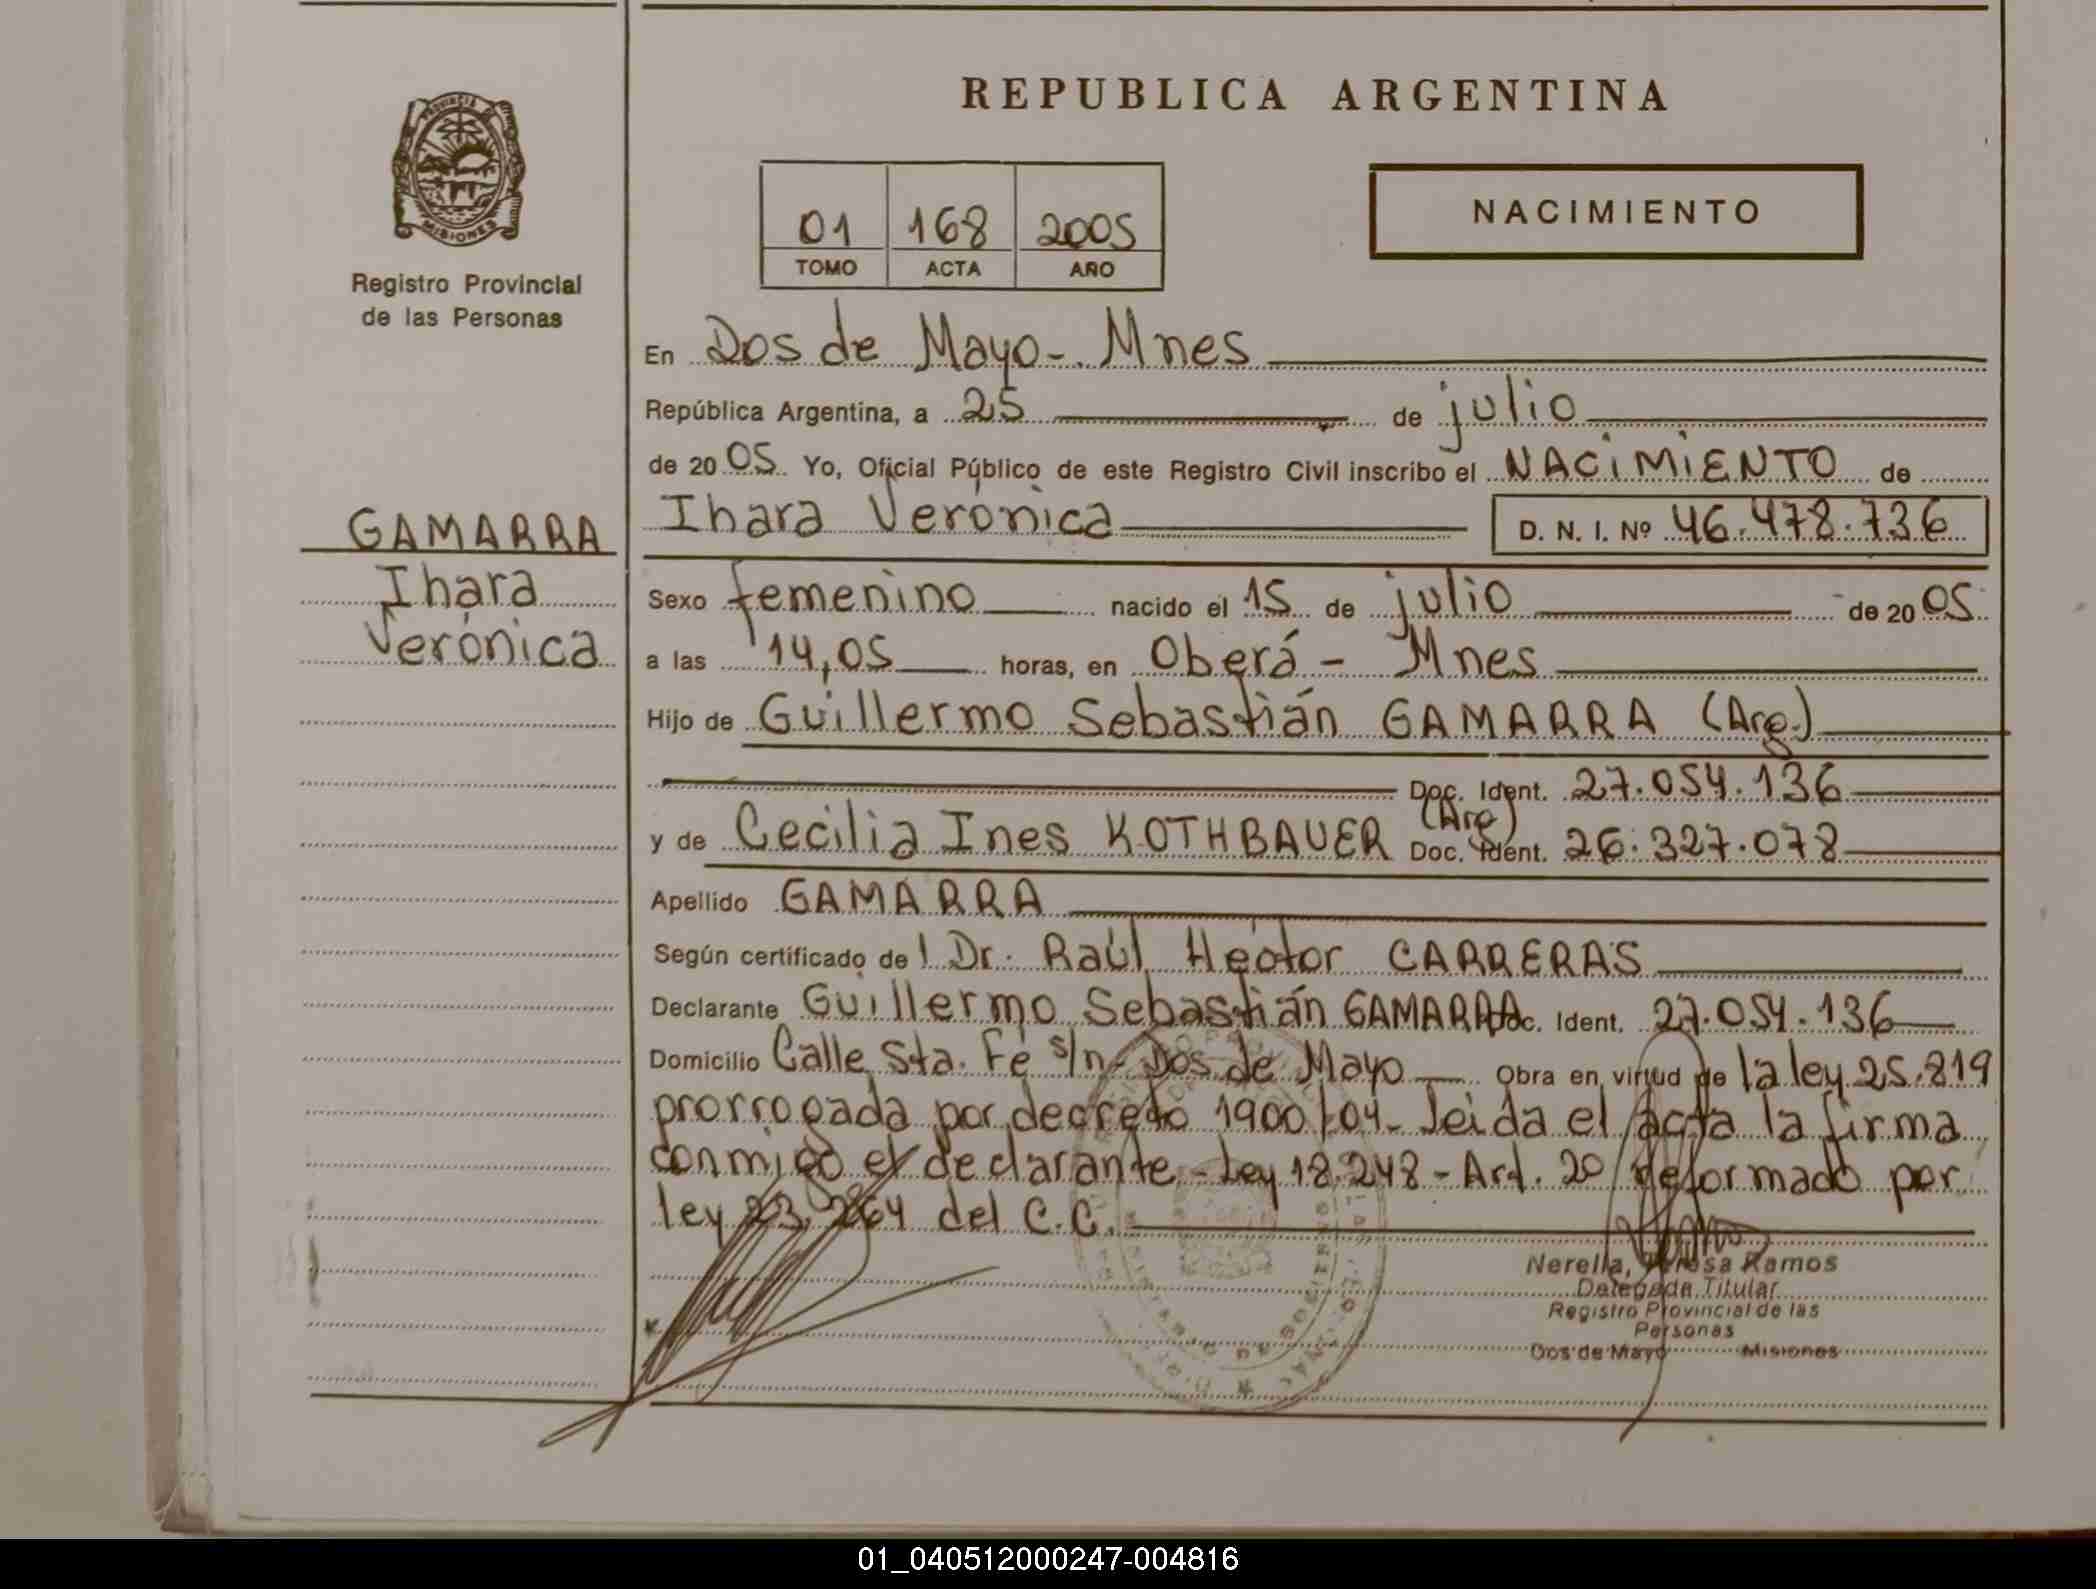 REPUBLICA ARGENTINA
PROVINCIA DE
MISIONES
Registro Provincial
de las Personas
01 168 2005
TOMO ACTA AÑO
NACIMIENTO
En Dos de Mayo- Mnes
República Argentina, a 25 de julio
de 20 05 Yo, Oficial Público de este Registro Civil inscribo el NACIMIENTO de
GAMARRA
Ihara Verónica
D. N. I. Nº 46.478.736
Ihara
Verónica
Sexo femenino nacido el 15 de julio de 20 05
a las 14,05 horas, en Oberá - Mnes
Hijo de Guillermo Sebastián GAMARRA (Arg.)
Doc. Ident. 27.054.136
y de Cecilia Ines KOTHBAUER (Arg) Doc. Ident. 26.327.078
Apellido GAMARRA
Según certificado del Dr. Raúl Héctor CARRERAS
Declarante Guillermo Sebastián GAMARRA Doc. Ident. 27.054.136
Domicilio Calle Sta. Fé s/n- Dos de Mayo Obra en virtud de la ley 25.819
prorrogada por decreto 1900/04- leida el acta la firma
conmigo el declarante - Ley 18.248 - Art. 20 reformado por
ley 23.264 del C.C.
Nerella, Teresa Ramos
Delegada Titular
Registro Provincial de las
Personas
Dos de Mayo Misiones
01_040512000247-004816